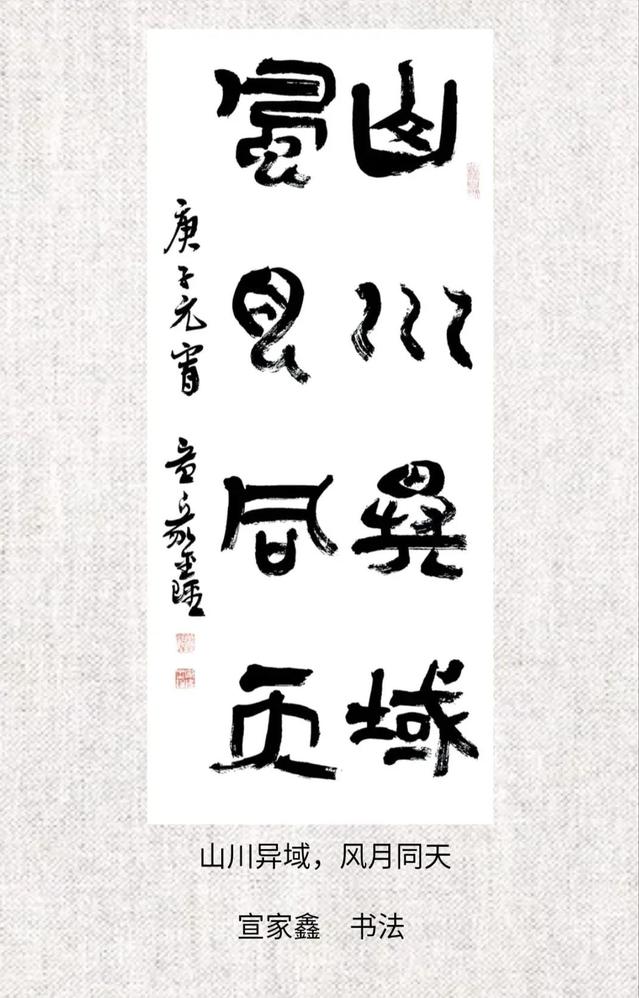 山川異域
風月同天
庚子元宵 宣家鑫
山川异域，风月同天
宣家鑫 书法